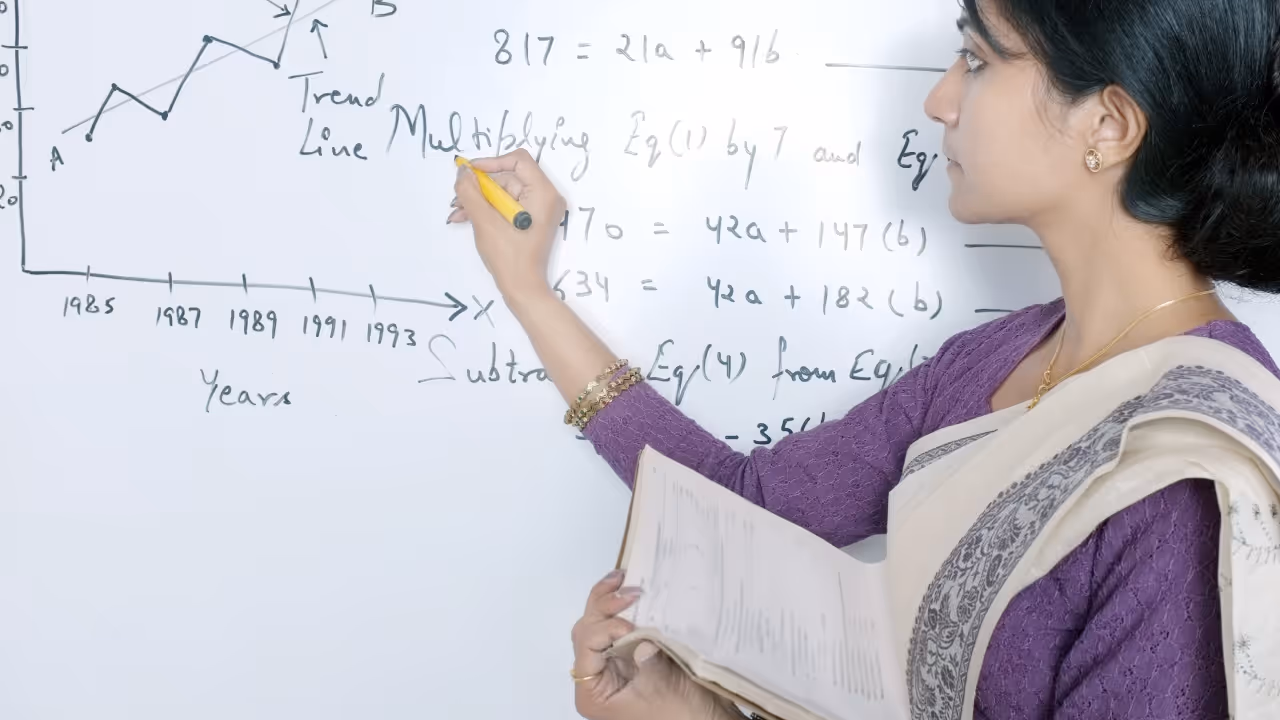 B
Trend
Line
A
20
1985 1987 1989 1991 1993 X
Years
817 = 21a + 91b
Multiplying Eq(1) by 7 and Eq
470 = 42a + 147(b)
634 = 42a + 182(b)
Eq(4) from Eq(
- 35(